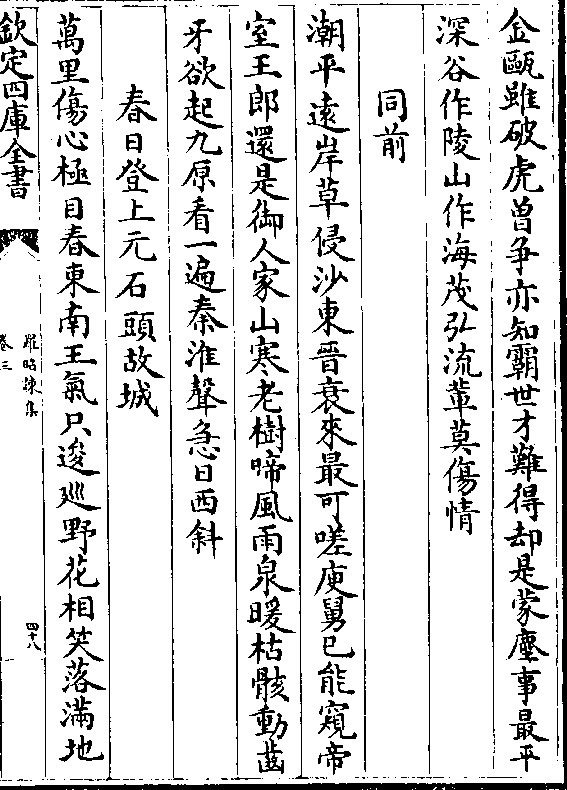 金甌雖破虎曽争亦知霸世才難得却是蒙塵事最平
深谷作陵山作海茂弘流輩莫傷情
同前
潮平逺岸草侵沙東晉衰來最可嗟庾舅已能窺帝
室王郎還是御人家山寒老樹啼風雨泉暖枯骸動齒
牙欲起九原看一遍秦淮聲急日西斜
春日登上元石頭故城
萬里傷心極目春東南王氣只逡廵野花相笑落滿地
欽定四庫全書
羅昭諫集
卷三
四十八